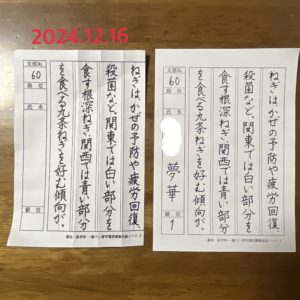 2024.12.16
ねぎは、かぜの予防や疲労回復、
殺菌など。関東では白い部分を
食す根深ねぎ、関西では青い部分
を食べる九条ねぎを好む傾向が。
支部No.
60
段位
氏名
級位
ねぎは、かぜの予防や疲労回復、
殺菌など。関東では白い部分を
食す根深ねぎ、関西では青い部分
を食べる九条ねぎを好む傾向が。
支部No.
60
段位
氏名
夢華
級位
1